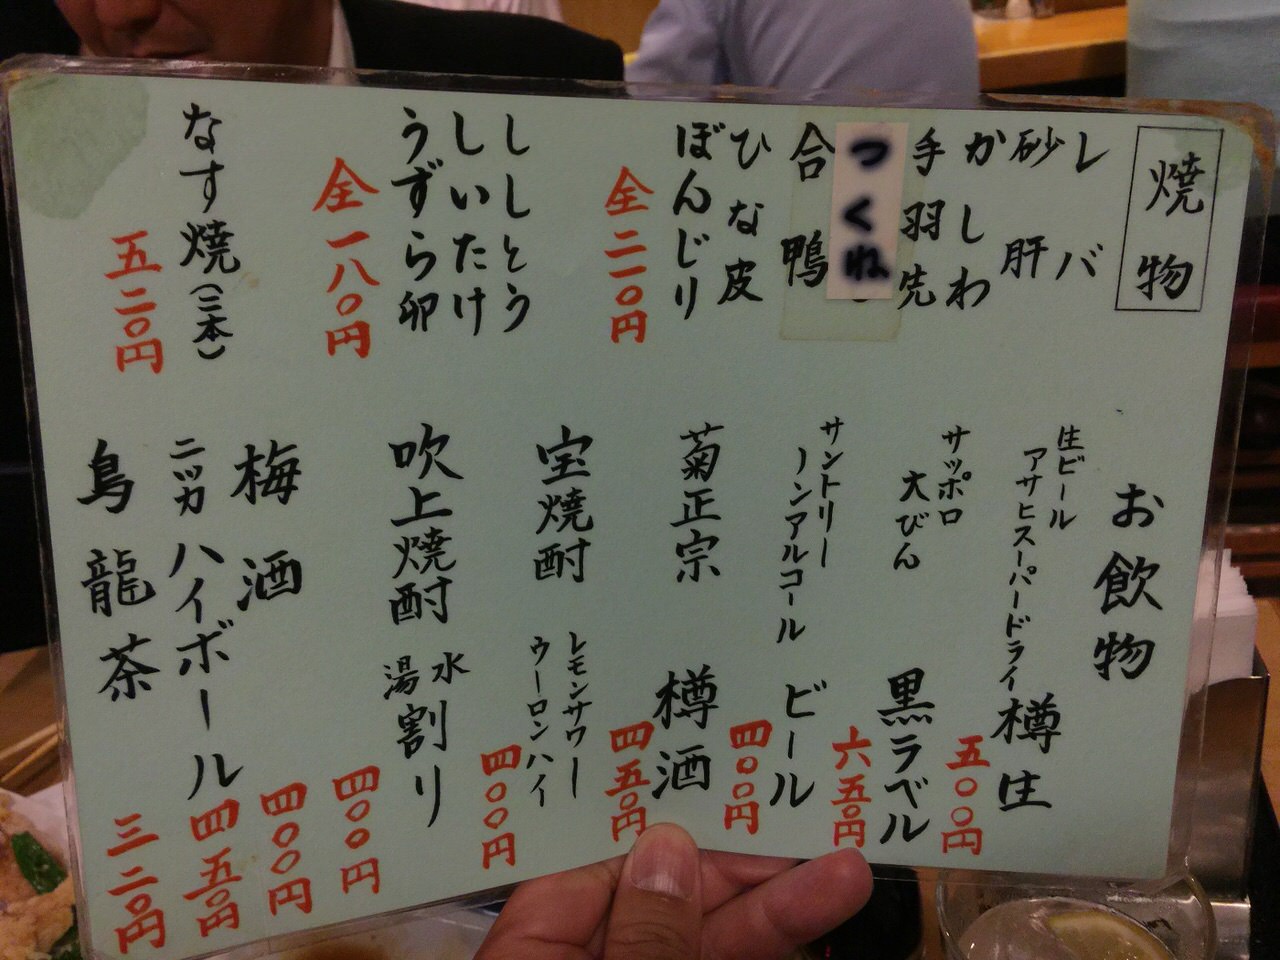 焼物
レバ
砂肝
かしわ
手羽先
つくね
合鴨
ひな皮
ぼんじり
全二一〇円
ししとう
しいたけ
うずら卵
全一八〇円
なす焼(三本)
五二〇円
お飲物
生ビール
アサヒスーパードライ 樽生
五〇〇円
サッポロ
大びん 黒ラベル
六五〇円
サントリー
ノンアルコール ビール
四〇〇円
菊正宗 樽酒
四五〇円
宝焼酎 レモンサワー
ウーロンハイ
四〇〇円
吹上焼酎 水
湯割り
四〇〇円
梅酒
四〇〇円
ニッカ ハイボール
四五〇円
烏龍茶
三二〇円